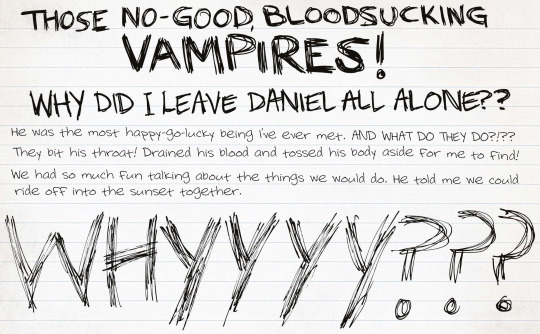 THOSE NO-GOOD, BLOODSUCKING
VAMPIRES!
WHY DID I LEAVE DANIEL ALL ALONE??
He was the most happy-go-lucky being i've ever met. AND WHAT DO THEY DO?!??
They bit his throat! Drained his blood and tossed his body aside for me to find!
We had so much fun talking about the things we would do. He told me we could
ride off into the sunset together.
WHYYYY???